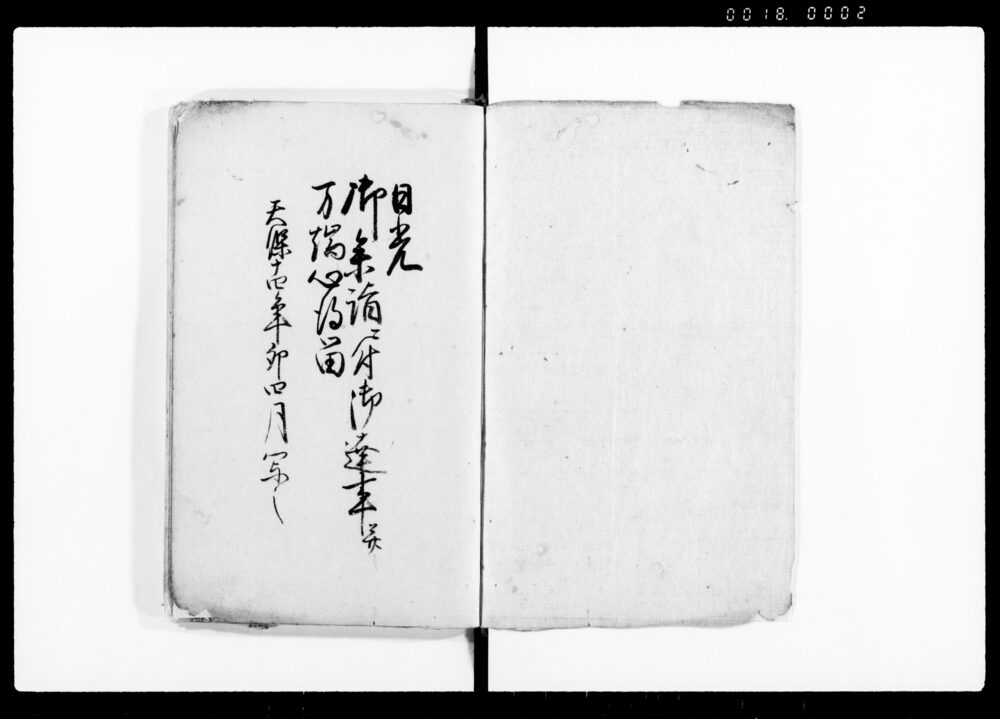 0018. 0002
日光
御参詣ニ付御達事并
万端心得留
天保十四年卯四月写之